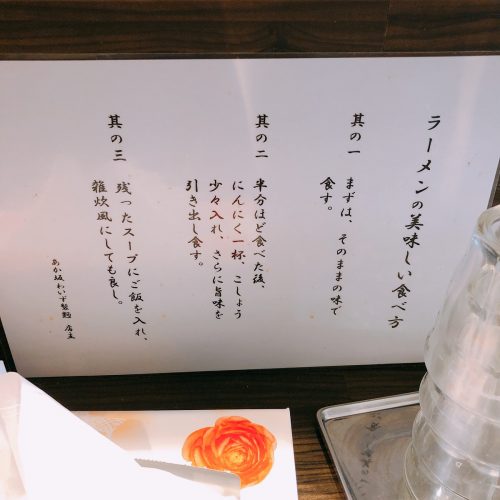 ラーメンの美味しい食べ方
其の一
まずは、そのままの味で
食す。
其の二
半分ほど食べた後、
にんにく一杯、こしょう
少々入れ、さらに旨味を
引き出し食す。
其の三
残ったスープにご飯を入れ、
雑炊風にしても良し。
あか坂わいず製麺 店主